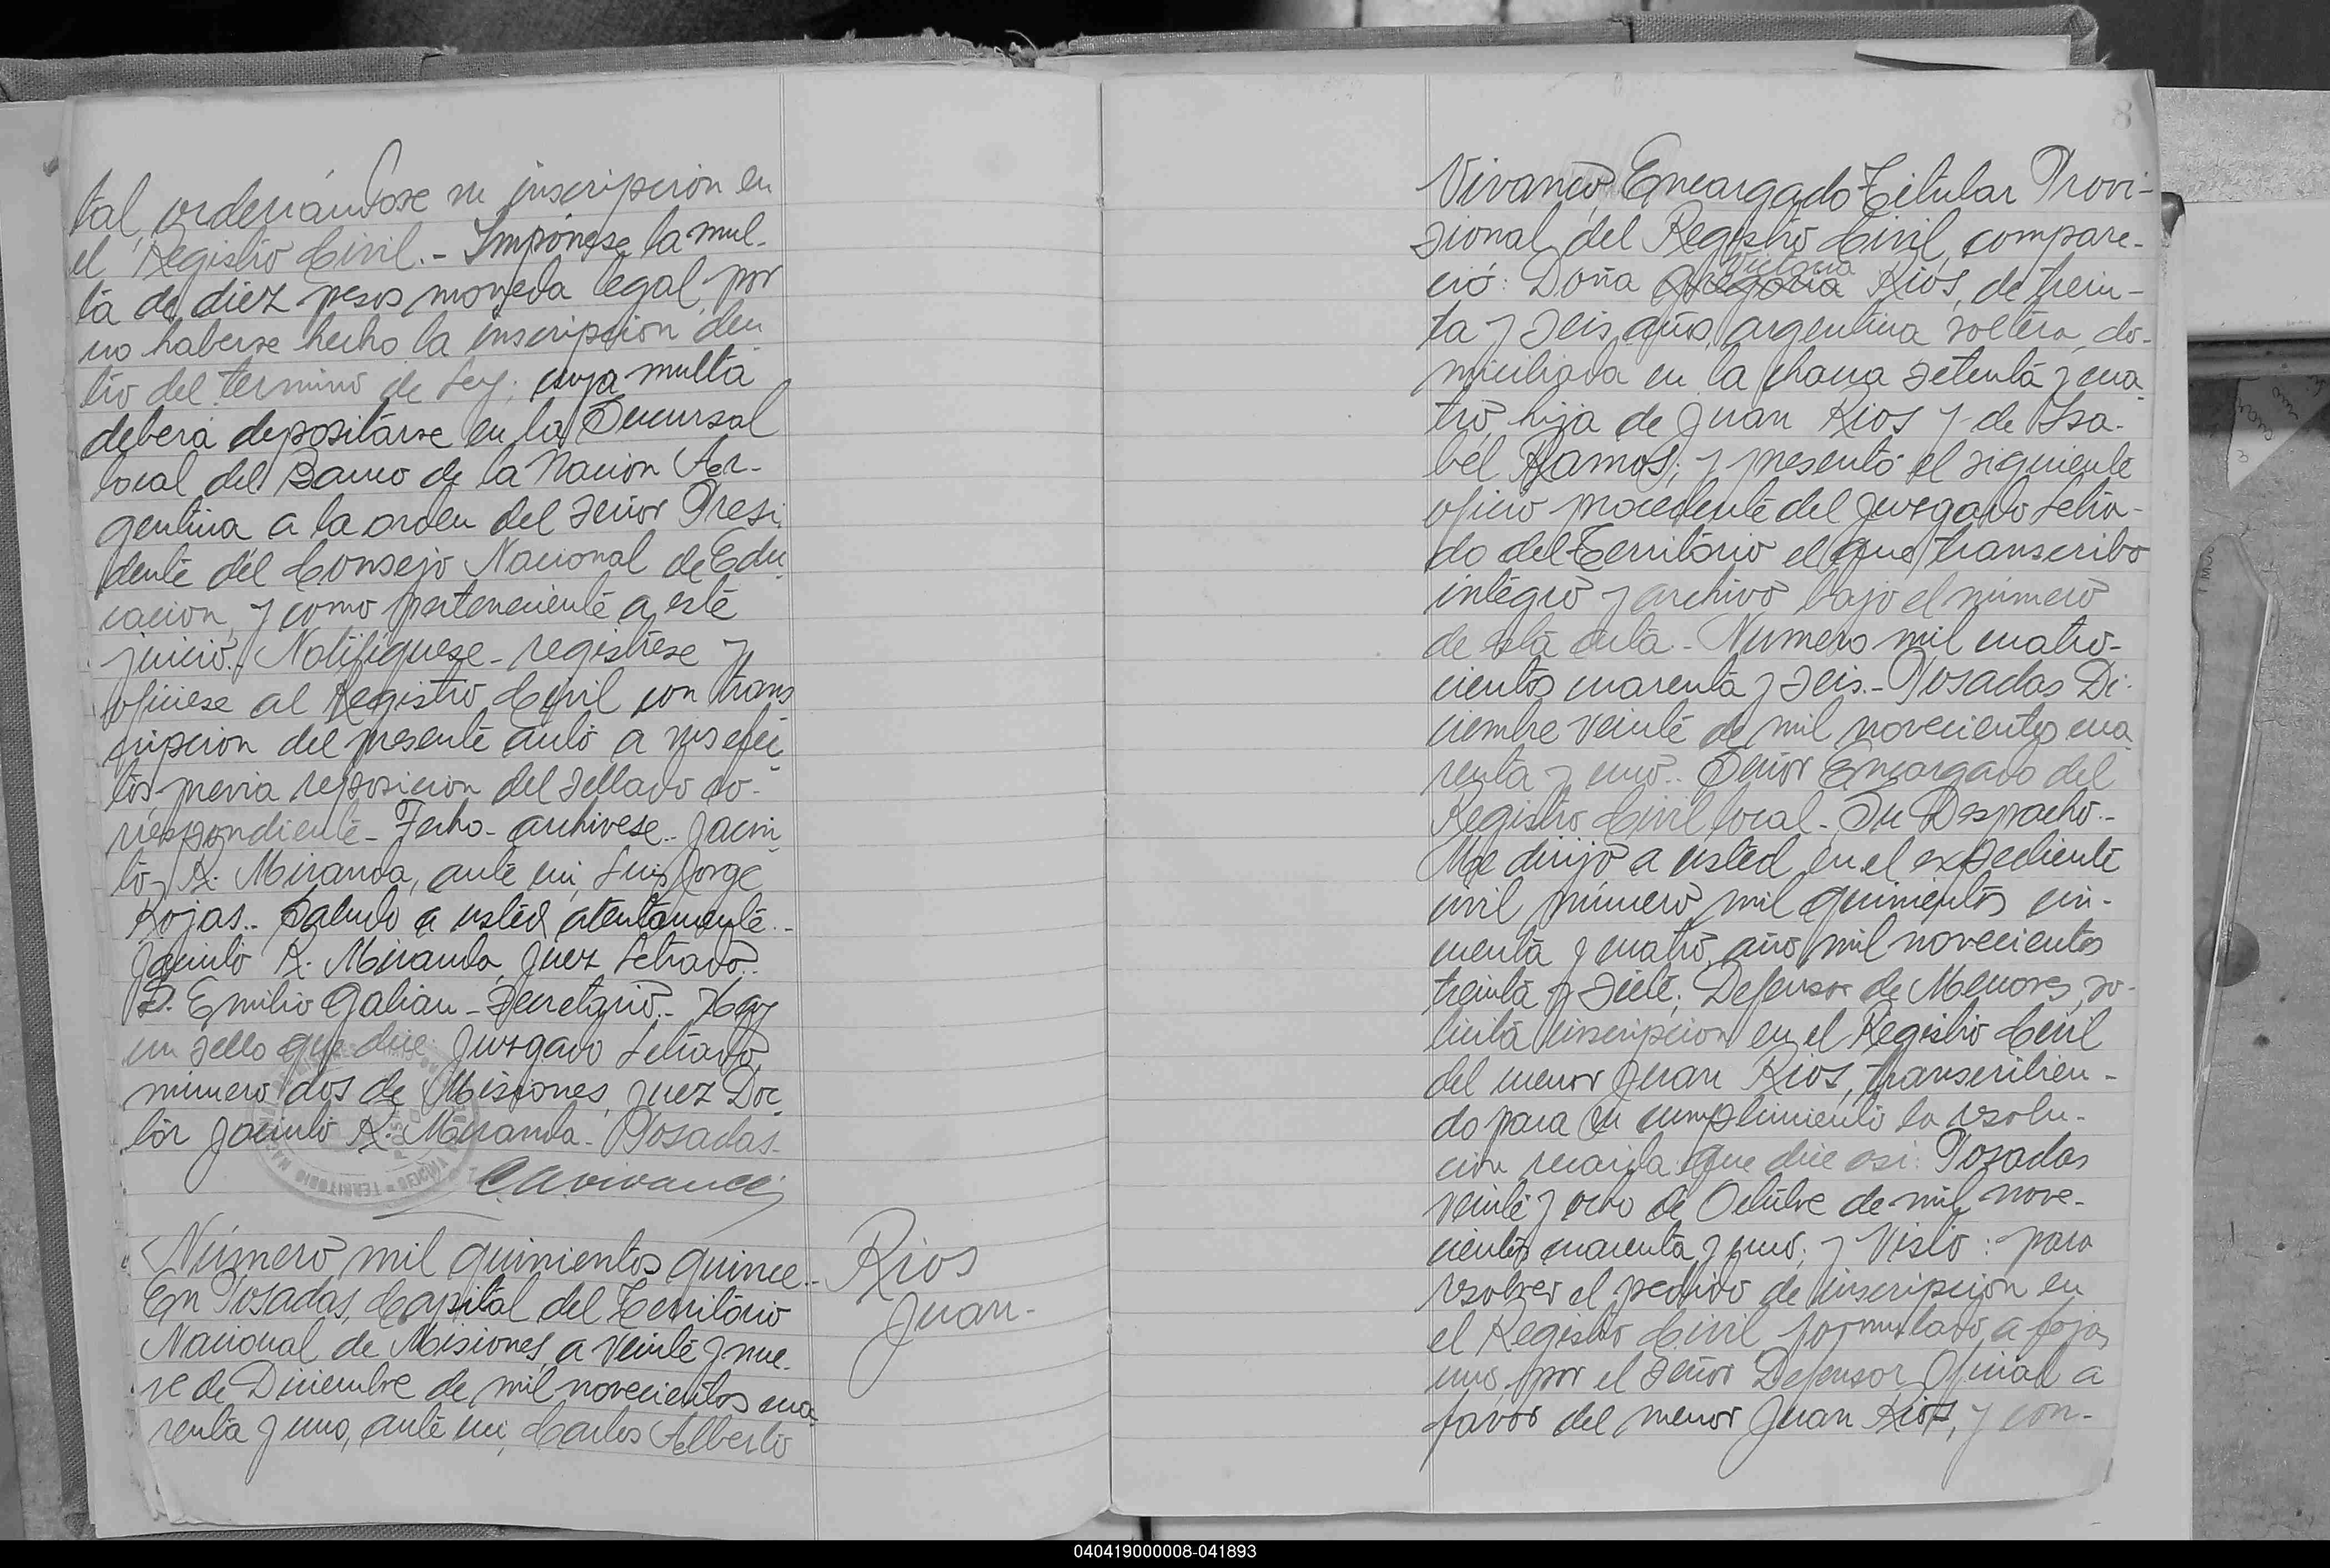 tal, ordenándose su inscripción en
el Registro Civil.- Impónese la mul-
ta de diez pesos moneda legal por
no haberse hecho la inscripcion den
tro del termino de Ley; cuya multa
deberá depositarse en la Sucursal
local del Banco de la Nacion Ar-
gentina a la orden del señor Presi
dente del Consejo Nacional de Edu
cacion, y como perteneciente a este
juicio.- Notifíquese- regístrese y
ofíciese al Registro Civil con trans
cripcion del presente auto a sus efec
tos, previa reposicion del sellado co-
rrespondiente- Fecho- archivese.- Jacin
to R. Miranda, ante mi, Luis Jorge
Rojas.- Saludo a usted atentamente.-
Jacinto R. Miranda, Juez Letrado.-
D. Emilio Galian- Secretario.- Hay
un sello que dice: Juzgado Letrado
número dos de Misiones, Juez Doc
tor Jacinto R. Miranda- Posadas-
CAVivanco
Número mil quinientos quince.-
En Posadas, Capital del Territorio
Nacional de Misiones, a veinte y nue-
ve de Diciembre de mil novecientos cua-
renta y uno, ante mi, Carlos Alberto
Rios
Juan-
8
Vivanco, Encargado Titular Provi-
sional del Registro Civil, compare-
Victoria
ció: Doña Gregoria Rios, de trein-
ta y seis años, argentina soltera, do-
miciliada en la chacra setenta y cua
tro, hija de Juan Rios y de Isa-
bel Ramos; y presentó el siguiente
oficio procedente del Juzgado Letra-
do del Territorio el que transcribo
integro y archivo bajo el número
de esta acta.- Numero mil cuatro-
cientos cuarenta y seis.- Posadas Di-
ciembre veinte de mil novecientos cua
renta y uno.- Señor Encargado del
Registro Civil local- Su Despacho.-
Me dirijo a usted en el expediente
civil número mil quinientos cin-
cuenta y cuatro, año mil novecientos
treinta y siete; Defensor de Menores, so-
licita inscripcion en el Registro Civil
del menor Juan Rios, transcribien-
do para su cumplimiento la resolu-
cion recaida que dice asi: Posadas
veinte y ocho de Octubre de mil nove-
cientos cuarenta y uno; y Visto: para
resolver el pedido de inscripcion en
el Registro Civil formulado a fojas
uno, por el señor Defensor Oficial a
favor del menor Juan Rios, y con-
040419000008-041893